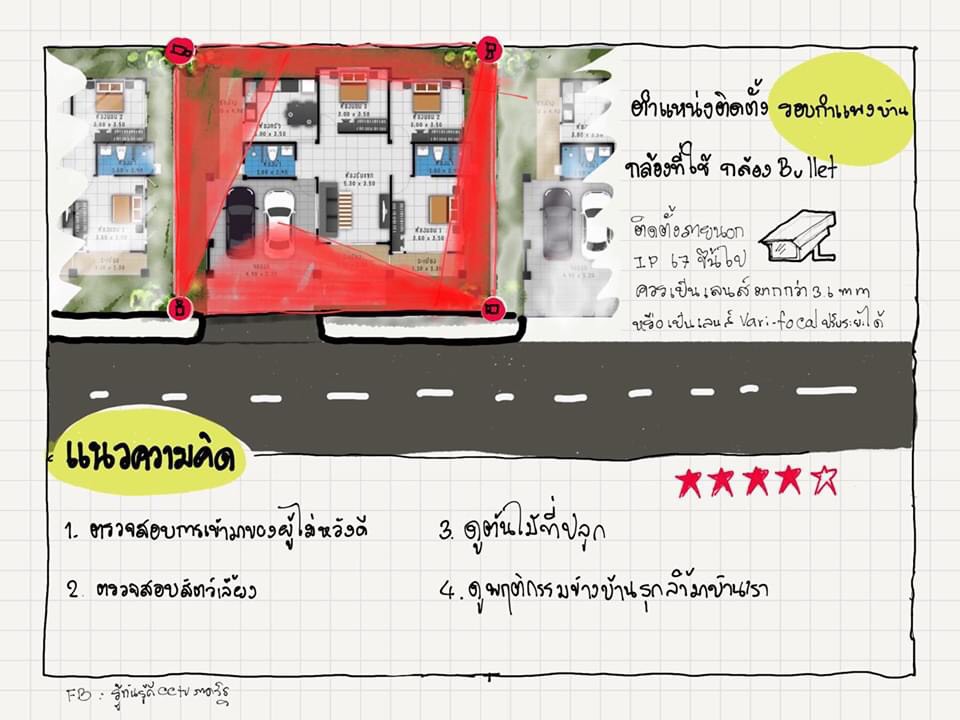 ตำแหน่งติดตั้ง รอบกำแพงบ้าน
กล้องที่ใช้ กล้อง Bullet
ติดตั้งภายนอก
IP 67 ขึ้นไป
ควรเป็นเลนส์มากกว่า 3.6 mm
หรือเป็นเลนส์ Vari-focal ปรับระยะได้
ห้องนอน 2
ห้องครัว
3.00 X 3.50
ห้องนอน 3
ห้องนอน 2
ห้องรับแขก
5.30 X 3.50
ห้องนอน 1
3.60 X 3.50
ห้องนอน 1
3.60 X 3.50
แนวความคิด
1. ตรวจสอบการเข้ามาของผู้ไม่หวังดี
2. ตรวจสอบสัตว์เลี้ยง
3. ดูต้นไม้ที่ปลูก
4. ดูพฤติกรรมข้างบ้านรุกล้ำมาบ้านเรา
FB : รู้ทันรู้ดี cctv